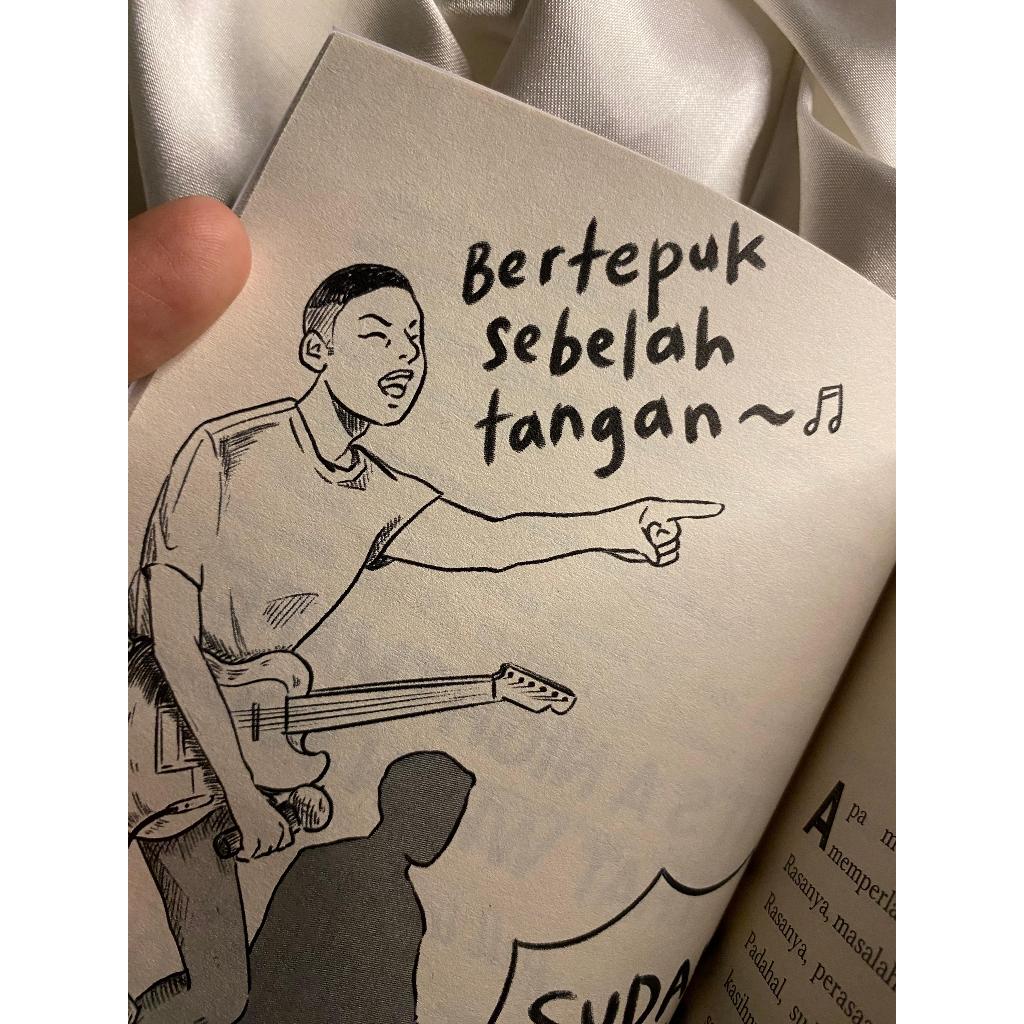 Bertepuk
sebelah
tangan~♫
Apa
memperla
Rasanya, masalah
Rasanya, perasaa
Padahal, su
kasihn